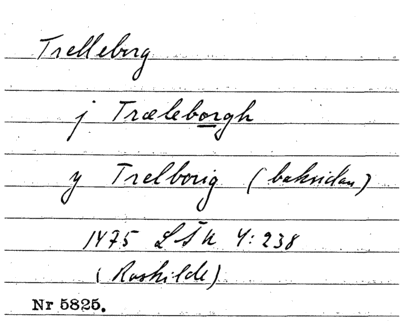 Trelleborg
j Træleborgh
y Trelborig (baksidan)
1475 LSU 4:238
(Roskilde)
Nr 5825.